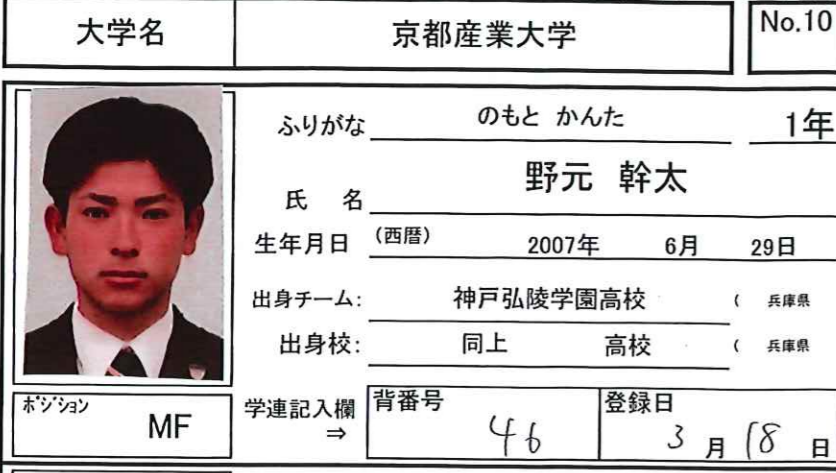 大学名 京都産業大学 No.10
ふりがな のもと かんた 1年
氏 名 野元 幹太
生年月日 (西暦) 2007年 6月 29日
出身チーム: 神戸弘陵学園高校 ( 兵庫県
出身校: 同上 高校 ( 兵庫県
ポジション MF 学連記入欄 ⇒ 背番号 46 登録日 3月18日